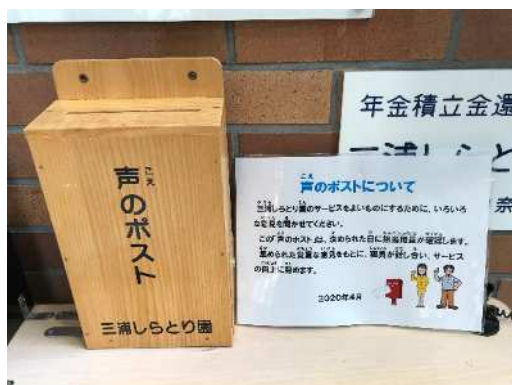 声のポスト
こえ
三浦しらとり園
年金積立金還
三浦しらと
奈
こえ
声のポストについて
三浦しらとり園のサービスをよいものにするために、いろいろ
な意見を聞かせてください。
この「声のポスト」は、決められた日に担当職員が確認します。
集められた貴重な意見をもとに、職員が話し合い、サービス
の向上に努めます。
2020年4月